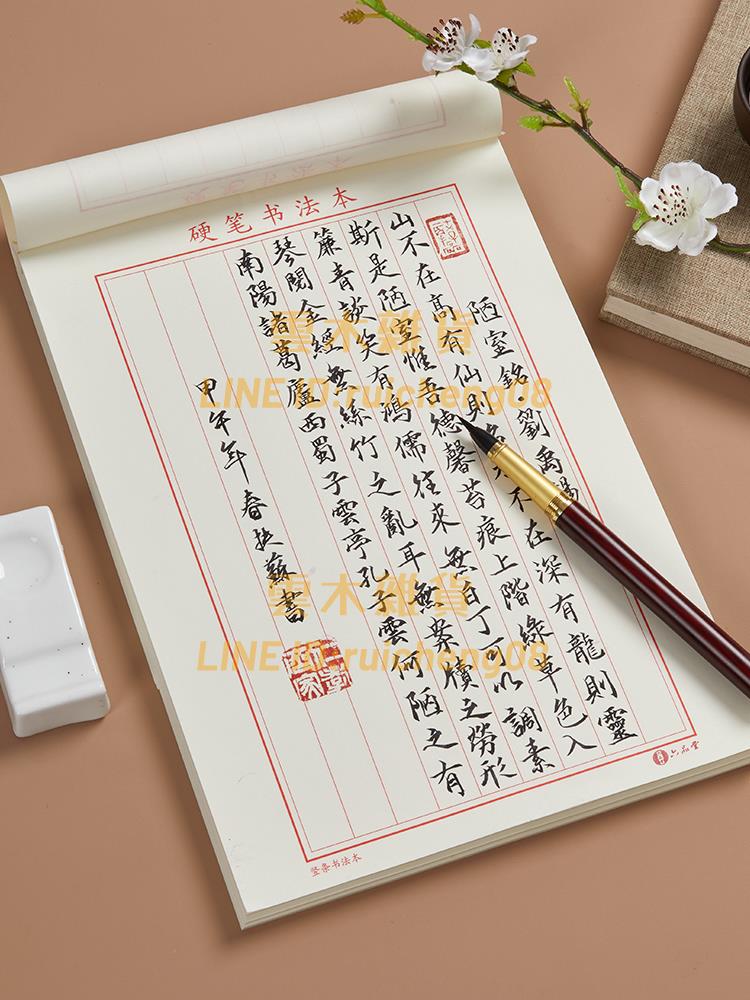 硬笔书法本
陋室銘 劉禹錫
山不在高有仙則名水不在深有龍則靈
斯是陋室惟吾德馨苔痕上階綠草色入
簾青談笑有鴻儒往來無白丁可以調素
琴閱金經無絲竹之亂耳無案牘之勞形
南陽諸葛廬西蜀子雲亭孔子雲何陋之有
甲午年春扶蘇書
六品堂
竖条书法本
雲木雜貨
LINE ID:ruicheng08
雲木雜貨
LINE ID:ruicheng08